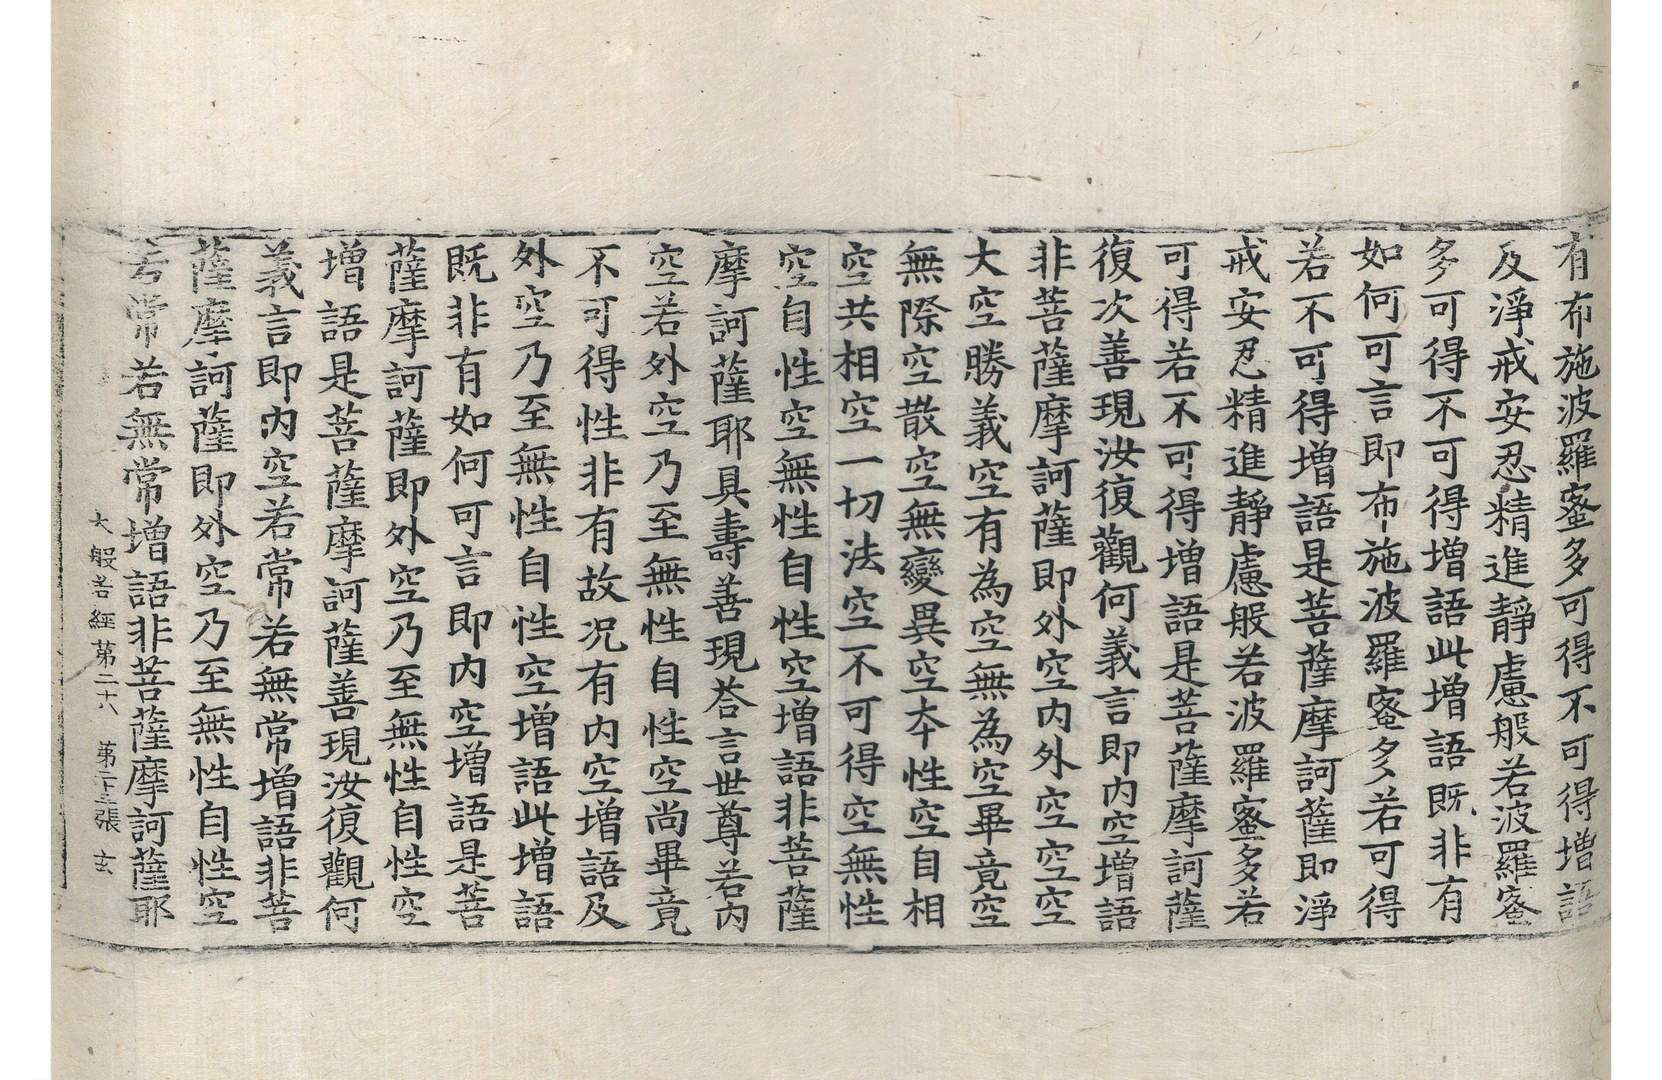 有布施波羅蜜多可得不可得增語
及淨戒安忍精進靜慮般若波羅蜜
多可得不可得增語此增語既非有
如何可言即布施波羅蜜多若可得
若不可得增語是菩薩摩訶薩即淨
戒安忍精進靜慮般若波羅蜜多若
可得若不可得增語是菩薩摩訶薩
復次善現汝復觀何義言即內空增語
非菩薩摩訶薩即外空內外空空空
大空勝義空有為空無為空畢竟空
無際空散空無變異空本性空自相
空共相空一切法空不可得空無性
空自性空無性自性空增語非菩薩
摩訶薩耶具壽善現荅言世尊若內
空若外空乃至無性自性空尚畢竟
不可得性非有故况有內空增語及
外空乃至無性自性空增語此增語
既非有如何可言即內空增語是菩
薩摩訶薩即外空乃至無性自性空
增語是菩薩摩訶薩善現汝復觀何
義言即內空若常若無常增語非菩
薩摩訶薩即外空乃至無性自性空
若常若無常增語非菩薩摩訶薩耶
大般若經第二十六 第二十三張 玄